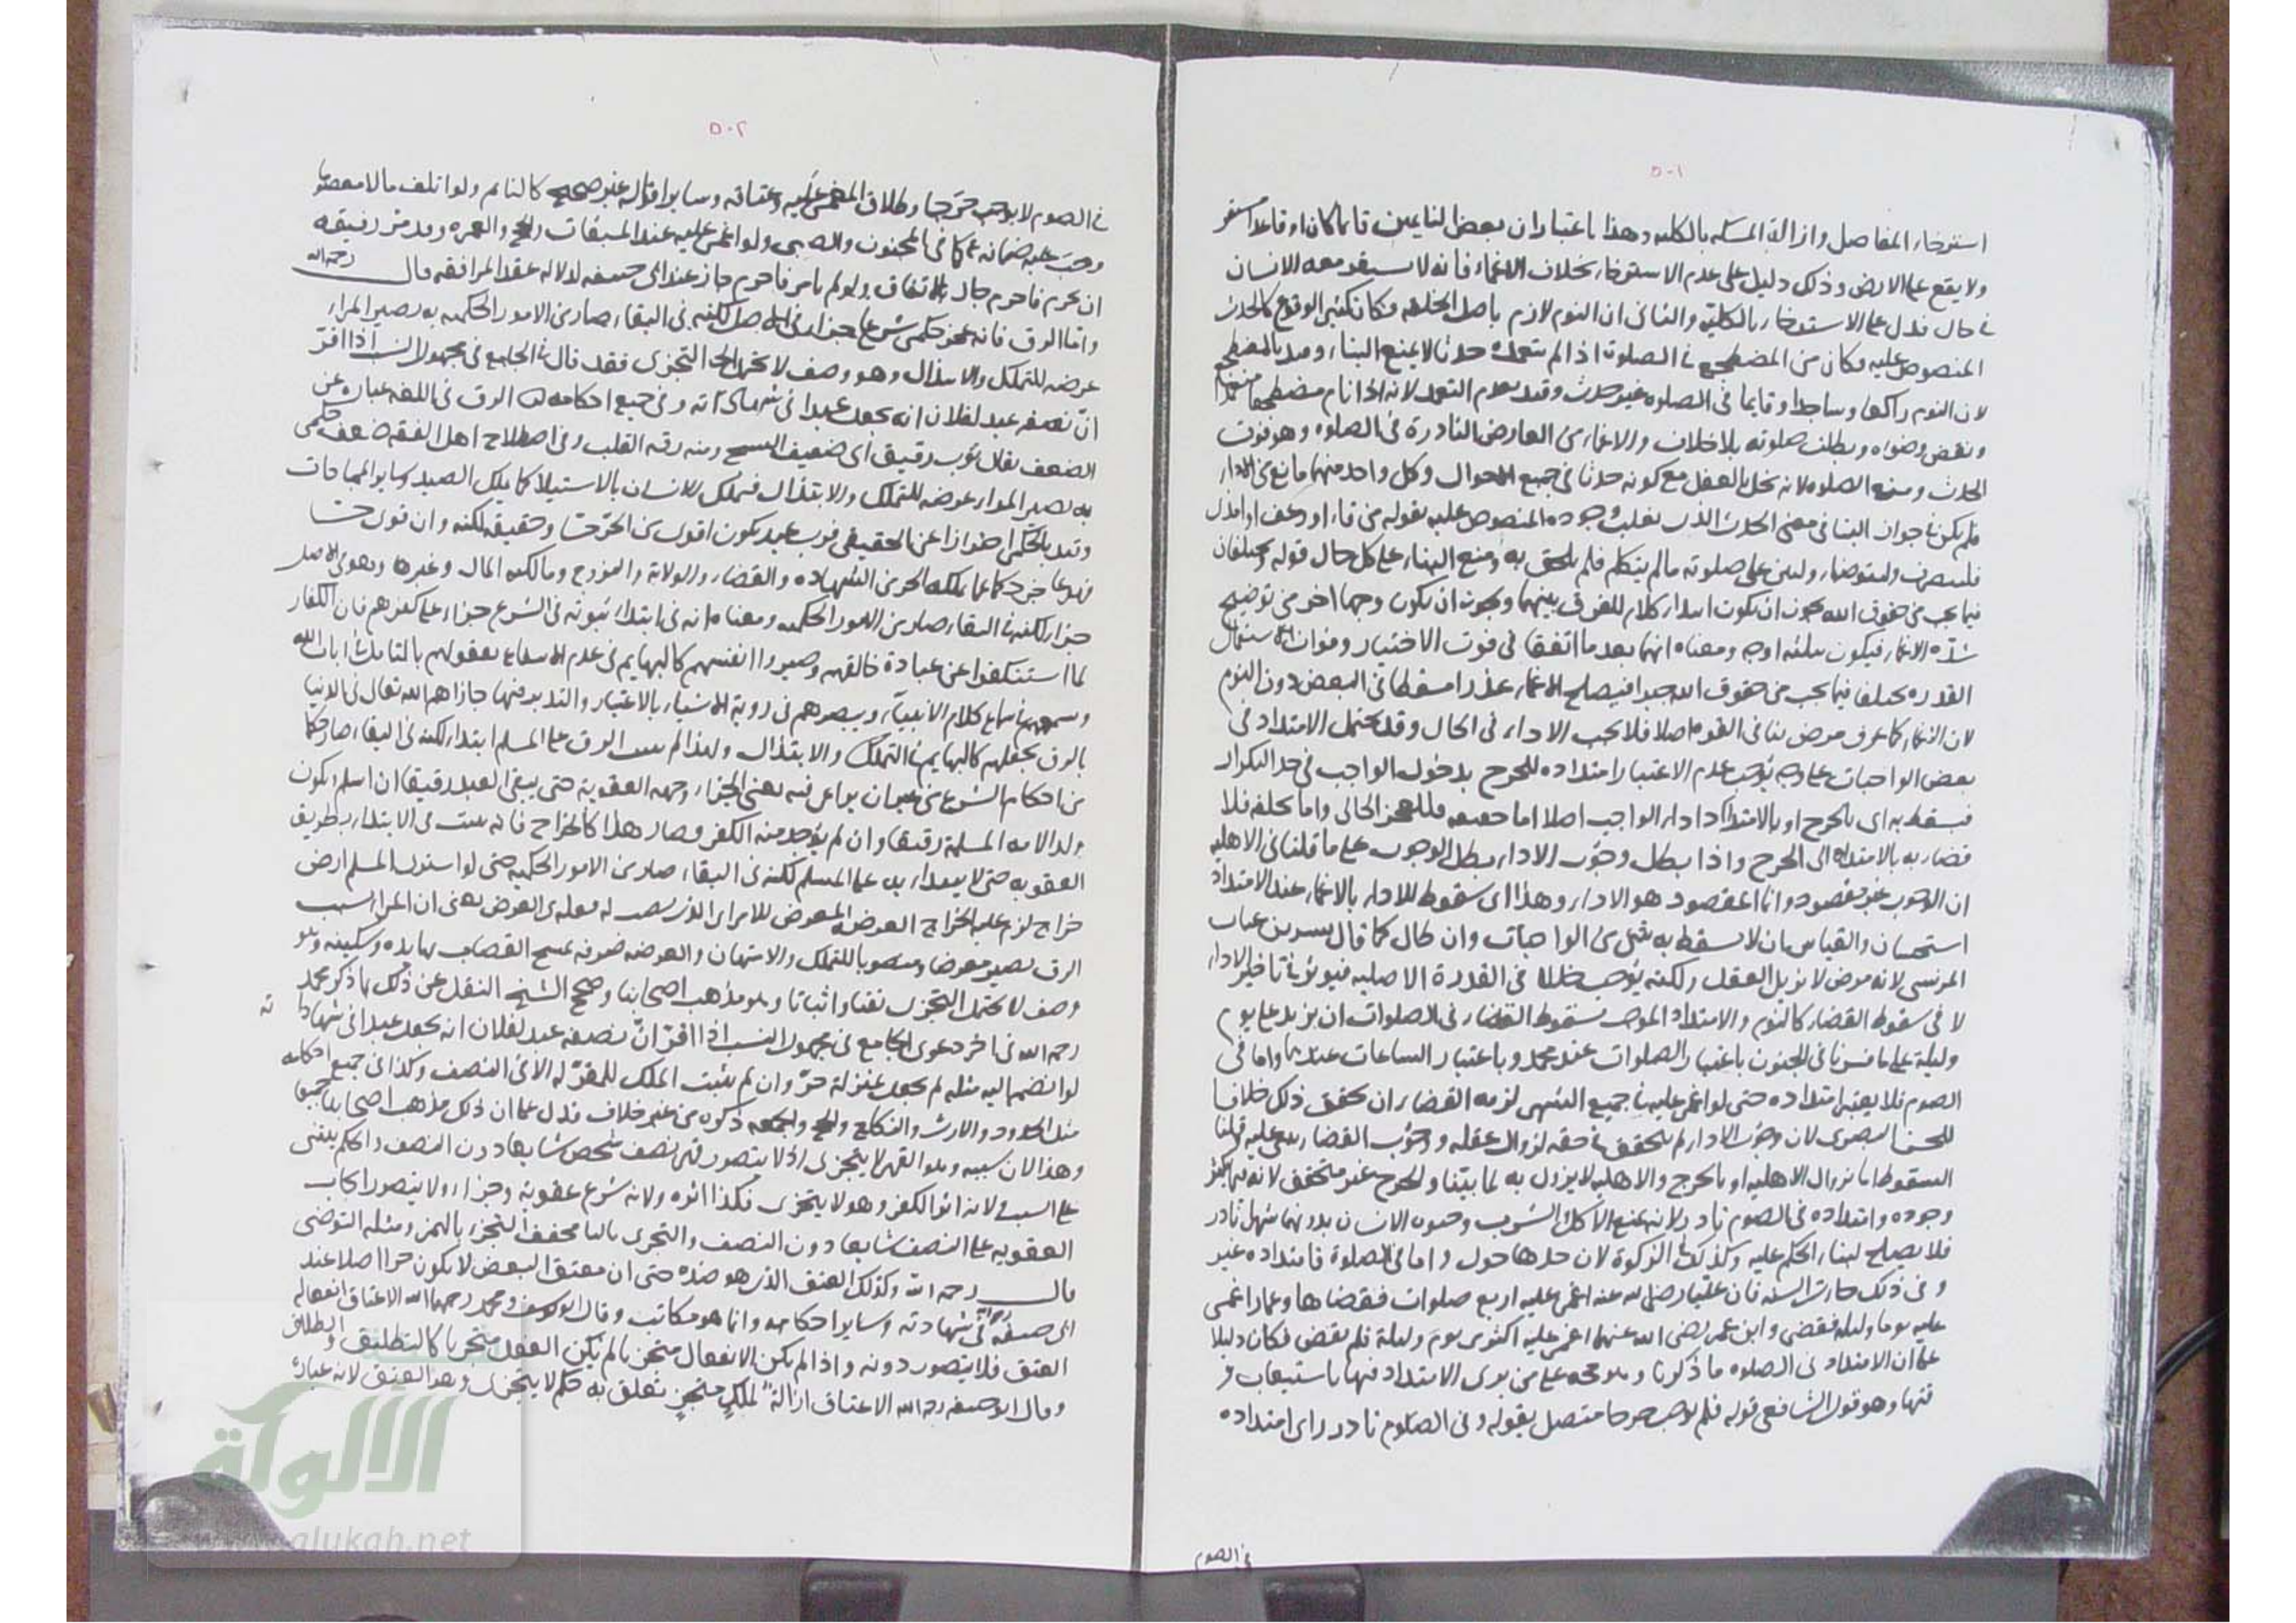 ٥٠١
استرخاء المفاصل وازالة المسكة بالكلية وهذا باعتبار ان بعض النائمين قائما كان او قاعدا مستقر
ولا يقع على الارض وذلك دليل على عدم الاسترخاء بخلاف الاغماء فانه لا يستقر معه الانسان
في حال فدل على الاسترخاء بالكلية والثاني ان النوم لازم باصل الخلقة فكان كثير الوقوع كالحدث
المنصوص عليه فكان من المضطجع في الصلوة اذا لم يتعمد حدثا لا يمنع البناء وقيد بالمضطجع
لان النوم راكعا وساجدا وقايما في الصلوة غير حدث وقيد بعدم التعمد لانه اذا نام مضطجعا متعمدا
ونقض وضوءه وبطلت صلوته بلا خلاف والاغماء من العارض النادرة في الصلوة وهو فوت
الحدث ومنع الصلوة لانه يخل بالعقل مع كونه حدثا في جميع الاحوال وكل واحد منهما مانع من الاداء
فلم يكن في جواز البناء في معنى الحدث الذي يغلب وجوده المنصوص عليه بقوله من قاء او رعف او امذى
فلينصرف وليتوضأ وليبن على صلوته ما لم يتكلم فلم يلحق به ومنع البناء على كل حال قوله ويختلفان
فيما يجب من حقوق الله يجوز ان يكون ابتداء كلام للفرق بينهما ويجوز ان يكون وجها اخر من توضيح
شدة الاغماء فيكون ثلثة اوجه ومعناه انهما بعد ما اتفقا في فوت الاختيار وفوات استعمال
القدرة يختلفا فيما يجب من حقوق الله جبرا فيصلح الاغماء عذرا مسقطا في البعض دون النوم
لان الاغماء كما عرف مرض ينافي القوة اصلا فلا يجب الاداء في الحال وقد يحتمل الامتداد في
بعض الواجبات على وجه يوجب عدم الاعتبار امتداده للحرج بدخول الواجب في حد التكرار
فيسقط به اي بالحرج او بالامتداد اداء الواجب اصلا اما حقيقة فللعجز الحالي واما خلفه فلا
فضاربه بالامتداد الى الحرج واذا بطل وجوب الاداء بطل الوجوب على ما قلنا في الاهلية
ان الوجوب غير مقصود وانما المقصود هو الاداء وهذا اي سقوط الاداء بالاغماء عند الامتداد
استحسان والقياس ان لا يسقط به شيء من الواجبات وان طال كما قال بشر بن غياث
المريسي لانه مرض لا يزيل العقل ولكنه يوجب خللا في القدرة الاصلية فيوثر في تاخير الاداء
لا في سقوط القضاء كالنوم والامتداد الموجب لسقوط القضاء في الصلوات ان يزيد على يوم
وليلة على ما فسرنا في الجنون باعتبار الصلوات عند محمد وباعتبار الساعات عندهما واما في
الصوم فلا يعتبر امتداده حتى لو اغمي عليه في جميع الشهر لزمه القضاء ان تحقق ذلك خلافا
للحسن البصري لان وجوب الاداء لم يتحقق في حقه لزوال عقله ووجوب القضاء يبنى عليه قلنا
السقوط اما بزوال الاهلية او بالحرج والاهلية لا يزول به لما بينا والحرج غير متحقق لانه فيما يكثر
وجوده وامتداده في الصوم نادر لانه يمنع الاكل والشرب وحيوة الانسان بدونهما شهرا نادر
فلا يصلح لبناء الحكم عليه وكذلك الزكوة لان حدها حول واما في الصلوة فامتداده غير
وفي ذلك جاءت السنة فان عليا رضي الله عنه اغمي عليه اربع صلوات فقضاها وعمارا اغمي
عليه يوما وليلة فقضى وابن عمر رضي الله عنهما اغمي عليه اكثر من يوم وليلة فلم يقض فكان دليلا
على ان الامتداد في الصلوة ما ذكرنا وهو حجة على من يرى الامتداد فيها باستيعاب
فتها وهو قول الشافعي قوله فلم يوجب حرجا متصل بقوله وفي الصوم نادر راي امتداده
في الصوم
٥٠٢
في الصوم لا يوجب حرجا وطلاق المغمى عليه وعتاقه وساير اقواله غير صحيح كالنائم ولو اتلف مالا معصوما
وجب عليه ضمانه كما في المجنون والصبي ولو اغمي عليه عند الميقات للحج والعمرة وقد مر رفيقه
ان يحرم فاحرم جاز بالاتفاق ولو لم يامر فاحرم جاز عند ابي حنيفة لدلالة عقد المرافقة قال رحمه الله
واما الرق فانه عجز حكمي شرع جزاء في الاصل لكنه في البقاء صار من الامور الحكمية به يصير المراء
عرضة للتملك والابتذال وهو وصف لا يحتمل التجزى فقد قال في الجامع في مجهول النسب اذا اقر
ان نصفه عبد لفلان انه يجعل عبدا في شهاداته وفي جميع احكامه الرق في اللغة عبارة عن
الضعف يقال ثوب رقيق اي ضعيف النسج ومنه رقة القلب وفي اصطلاح اهل الفقه ضعف حكمي
به يصير المراء عرضة للتملك والابتذال فيملك الانسان بالاستيلا كما يملك الصيد وساير المباحات
وقيد بالحكمي احترازا عن الحقيقي فرب عبد يكون اقوى من الحر حسا وحقيقة لكنه وان قوى حسا
فهو عاجز حكما عما يملكه الحر من الشهادة والقضاء والولاية والتزوج ومالكية المال وغيرها وهو في الاصل
جزاء لكنه في البقاء صار من الامور الحكمية ومعناه انه في ابتداء ثبوته في الشرع جزاء على كفرهم فان الكفار
لما استنكفوا عن عبادة خالقهم وصيروا انفسهم كالبهايم في عدم الانتفاع بعقولهم بالتامل في ايات الله
وسمعهم في سماع كلام الانبياء وبصرهم في روية الاشياء بالاعتبار والتدبر فيها جازاهم الله تعالى في الدنيا
بالرق بجعلهم كالبهايم في التملك والابتذال ولهذا لم يثبت الرق على المسلم ابتداء لكنه في البقاء صار حكما
من احكام الشرع من غير ان يراعى فيه معنى الجزاء وجهة العقوبة حتى يبقى العبد رقيقا ان اسلم ويكون
ولد الامة المسلمة رقيقا وان لم يوجد منه الكفر وصار هذا كالخراج فانه يثبت في الابتداء بطريق
العقوبة حتى لا يبتداء به على المسلم لكنه في البقاء صار من الامور الحكمية حتى لو اشترى المسلم ارض
خراج لزم عليه الخراج العرضة المعرض للامر اي الذي نصب له معلى من العرض يعني ان المراء بسبب
الرق يصير معرضا ومنصوبا للتملك والامتهان والعرضة خرقة يمسح القصاب بها يده وسكينه وهو
وصف لا يحتمل التجزى نفيا واثباتا وهو مذهب اصحابنا وصحح الشيخ النقل عن ذلك بما ذكر محمد
رحمه الله في اخر دعوى الجامع في مجهول النسب اذا اقر ان نصفه عبد لفلان انه يجعل عبدا في شهاداته
لو انضم اليه مثله لم يجعل بمنزلة حر وان لم يثبت الملك للمقر له الا في النصف وكذا في جميع احكامه
مثل الحدود والارث والنكاح والحج والجمعة ذكره من غير خلاف فدل على ان ذلك مذهب اصحابنا جميعا
وهذا لان سببه وهو القهر لا يتجزى اذ لا يتصور قهر نصف شخص شايعا دون النصف والحكم يبتنى
على السبب لانه اثر الكفر وهو لا يتجزى فكذا اثره ولانه شرع عقوبة وجزاء ولا يتصور ايجاب
العقوبة على النصف شايعا دون النصف والتجزى بالياء مخفف التجزء بالهمز ومثله التوضى
قال رحمه الله وكذلك العتق الذي هو ضده حتى ان معتق البعض لا يكون حرا اصلا عند
ابي حنيفة رحمه الله في شهادته وساير احكامه وانما هو مكاتب وقال ابو يوسف ومحمد رحمهما الله الاعتاق انفعاله
العتق فلا يتصور دونه واذا لم يكن الانفعال متجزيا لم يكن الفعل متجزيا كالتطليق والطلاق
وقال ابو حنيفة رحمه الله الاعتاق ازالة لملك متجز تعلق به حكم لا يتجزى وهو العتق لانه عبارة
الألوكة
www.alukah.net